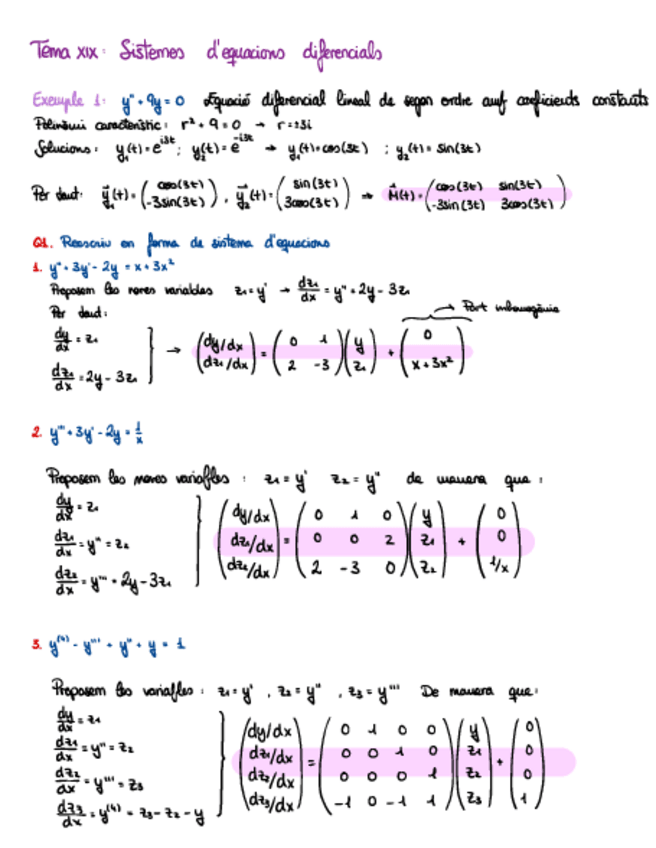 Tema XIX: Sistemes d'equacions diferencials
Exemple 1: y'' + 9y = 0 Equació diferencial lineal de segon ordre amb coeficients constants
Polinomi característic: r² + 9 = 0 → r = ±3i
Solucions: y₁(t) = e^{i3t} ; y₂(t) = e^{-i3t} → y₁(t) = cos(3t) ; y₂(t) = sin(3t)
Per tant: y⃗₁(t) = (cos(3t) / -3sin(3t)), y⃗₂(t) = (sin(3t) / 3cos(3t)) ⇒ M(t) = (cos(3t) sin(3t) / -3sin(3t) 3cos(3t))
Q1. Reescriu en forma de sistema d'equacions
1. y'' + 3y' - 2y = x + 3x²
Proposem les noves variables z₁ = y' → dz₁/dx = y'' = 2y - 3z₁
Per tant: → Part inhomogènia
dy/dx = z₁
dz₁/dx = 2y - 3z₁
→ (dy/dx / dz₁/dx) = (0 1 / 2 -3)(y / z₁) + (0 / x + 3x²)
2. y''' + 3y' - 2y = 1/x
Proposem les noves variables : z₁ = y' z₂ = y'' de manera que :
dy/dx = z₁
dz₁/dx = y'' = z₂
dz₂/dx = y''' = 2y - 3z₁
(dy/dx / dz₁/dx / dz₂/dx) = (0 1 0 / 0 0 2 / 2 -3 0)(y / z₁ / z₂) + (0 / 0 / 1/x)
3. y⁽⁴⁾ - y''' + y'' + y = 1
Proposem les variables : z₁ = y' , z₂ = y'' , z₃ = y''' De manera que:
dy/dx = z₁
dz₁/dx = y'' = z₂
dz₂/dx = y''' = z₃
dz₃/dx = y⁽⁴⁾ = z₃ - z₂ - y
(dy/dx / dz₁/dx / dz₂/dx / dz₃/dx) = (0 1 0 0 / 0 0 1 0 / 0 0 0 1 / -1 0 -1 1)(y / z₁ / z₂ / z₃) + (0 / 0 / 0 / 1)